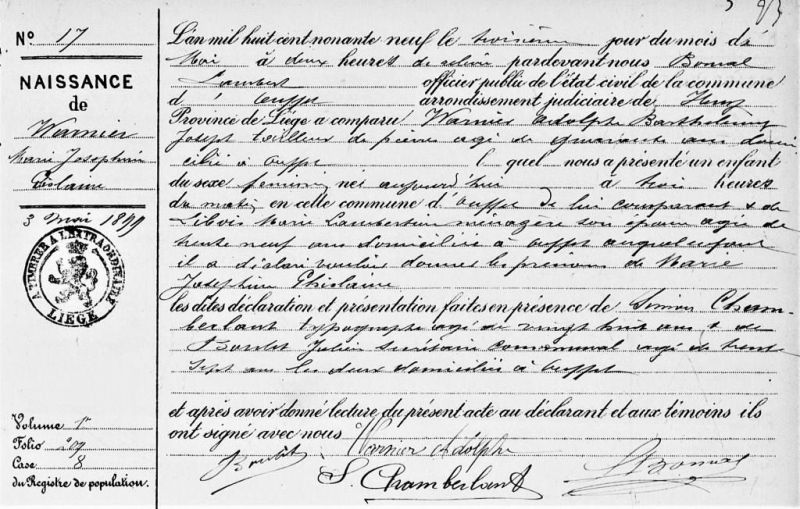 Nº 17
NAISSANCE
de
Warnier
Marie Joséphine
Ghislaine
3 Mai 1899
TIMBRE A L'EXTRAORDINAIRE
LIEGE
Volume 1r
Folio 209
Case 8
du Registre de population.
L'an mil huit cent nonante neuf le troisième jour du mois de
Mai à deux heures de relevée pardevant nous Bonval
Lambert officier public de l'état civil de la commune
d' Ouffet arrondissement judiciaire de Huy
Province de Liége a comparu Warnier Adolphe Barthelemy
Joseph tailleur de pierres agé de quarante ans domi
cilié à Ouffet lequel nous a présenté un enfant
du sexe féminin né aujourd'hui à trois heures
du matin en cette commune d'Ouffet de lui comparant & de
Libois Marie Lambertine ménagère son épouse agée de
trente neuf ans domiciliée à Ouffet auquel enfant
il a déclaré vouloir donner les prénoms de Marie
Joséphine Ghislaine
les dites déclaration et présentation faites en présence de Simon Cham-
berlant typographe agé de vingt huit ans & de
Boulet Julien Secrétaire communal agé de trente
sept ans les deux domiciliés à Ouffet
et après avoir donné lecture du présent acte au déclarant et aux témoins ils
ont signé avec nous Warnier Adolphe
Boulet S. Chamberlant